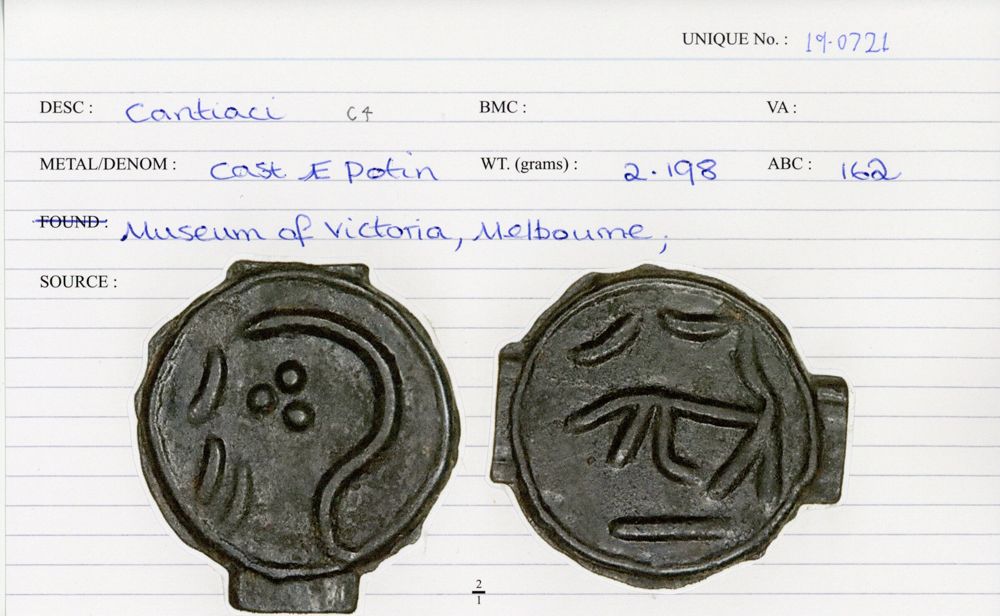 UNIQUE No. : 19.0721
DESC : Cantiaci C4 BMC : VA :
METAL/DENOM : Cast Æ Potin WT. (grams) : 2.198 ABC : 162
FOUND: Museum of Victoria, Melbourne;
SOURCE :
2
1